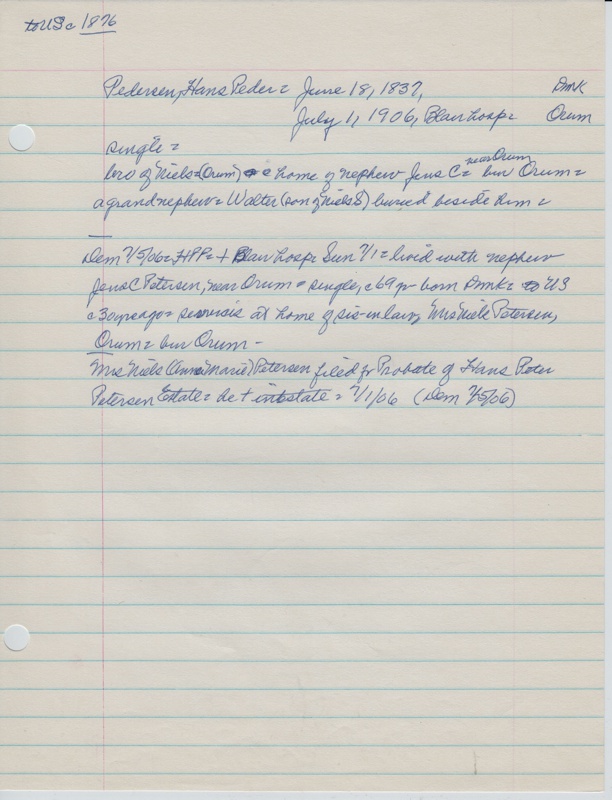 to US c 1876
Pedersen, Hans Peder = June 18, 1837, Dmk
July 1, 1906, Blair hosp = Orum
single =
bro of Niels = (Orum) = @ home of nephew Jens C = near Orum bur Orum =
a grand nephew = Walter (son of Niels S) buried beside him =
Dem 7/5/06 = HPP = + Blair hosp = Sun 7/1 = lived with nephew
Jens C Petersen, near Orum = single, c 69 yr = born Dmk = to US
c 30 yrs ago = services at home of sis-in-law, Mrs Niels Petersen,
Orum = bur Orum -
Mrs Niels (Anne Marie) Petersen filed for Probate of Hans Peter
Petersen Estate = he + intestate = 7/1/06 (Dem 7/5/06)